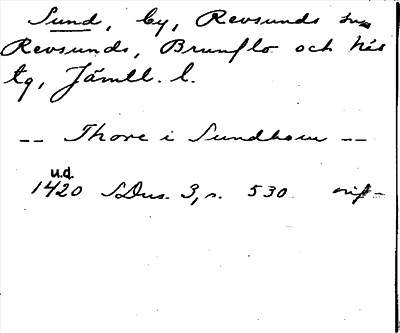 Sund, by, Revsunds sn
Revsunds, Brunflo och Näs
tg, Jämtl. l.
-- Thore i Sundhom --
u.d.
1420 SDns. 3, s. 530 orig-